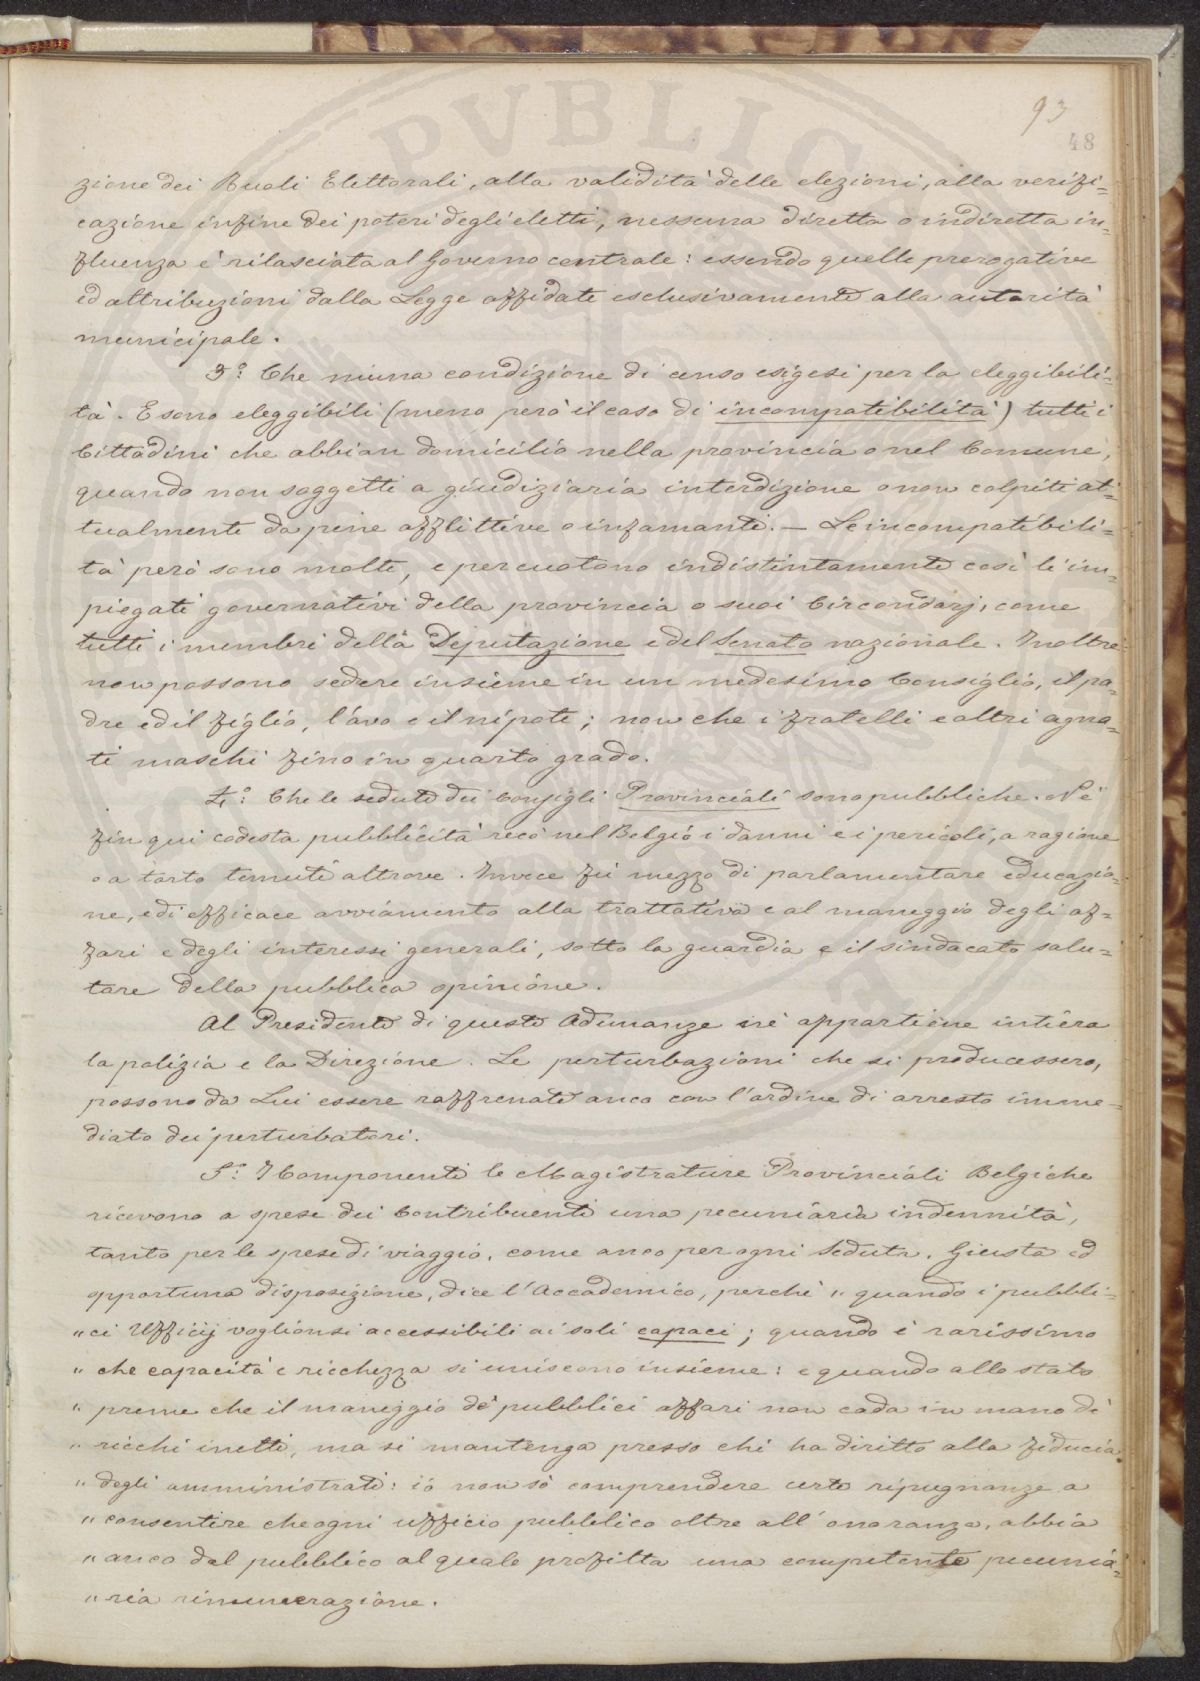 93
48
zione dei Ruoli Elettorali, alla validità delle elezioni, alla verifi=
cazione infine dei poteri degli eletti, nessuna diretta o indiretta in=
fluenza è rilasciata al Governo centrale: essendo quelle prerogative
ed attribuzioni dalla Legge affidate esclusivamente alla autorità
municipale.
3°: Che niuna condizione di censo esigesi per la eleggibili=
tà. E sono eleggibili (meno però il caso di incompatibilità) tutti i
Cittadini che abbian domicilio nella provincia o nel Comune,
quando non soggetti a giudiziaria interdizione o non colpiti at=
tualmente da pene afflittive o infamanti. — Le incompatibili=
tà però sono molte, e percuotono indistintamente così li im=
piegati governativi della provincia o suoi Circondarj, come
tutti i membri della Deputazione e del Senato nazionale. Inoltre
non possono sedere insieme in un medesimo Consiglio, il pa=
dre ed il figlio, l'avo e il nipote; non che i fratelli e altri agna=
ti maschi fino in quarto grado.
4°: Che le sedute dei Consigli Provinciali sono pubbliche. Nè
fin qui codesta pubblicità recò nel Belgio i danni e i pericoli, a ragione
o a torto temuti altrove. Invece fù mezzo di parlamentare educazio=
ne, e di efficace avviamento alla trattativa e al maneggio degli af=
fari e degli interessi generali, sotto la guardia e il sindacato salu=
tare della pubblica opinione.
Al Presidente di queste Adunanze nè appartiene intiera
la polizia e la Direzione. Le perturbazioni che si producessero,
possono da Lui essere raffrenate anco con l'ordine di arresto imme=
diato dei perturbatori.
5°: I Componenti le Magistrature Provinciali Belgiche
ricevono a spese dei Contribuenti una pecuniaria indennità,
tanto per le spese di viaggio, come anco per ogni Seduta. Giusta ed
opportuna disposizione, dice l'Accademico, perchè „ quando i pubbli=
„ ci Ufficij voglionsi accessibili ai soli capaci; quando è rarissimo
„ che capacità e ricchezza si uniscono insieme: e quando allo stato
„ preme che il maneggio de' pubblici affari non cada in mano di
„ ricchi inetti, ma si mantenga presso chi ha diritto alla fiducia
„ degli amministrati: io non sò comprendere certe ripugnanze a
„ consentire che ogni ufficio pubblico oltre all'onoranza, abbia
„ anco dal pubblico al quale profitta una competente pecunia=
„ ria rimunerazione.